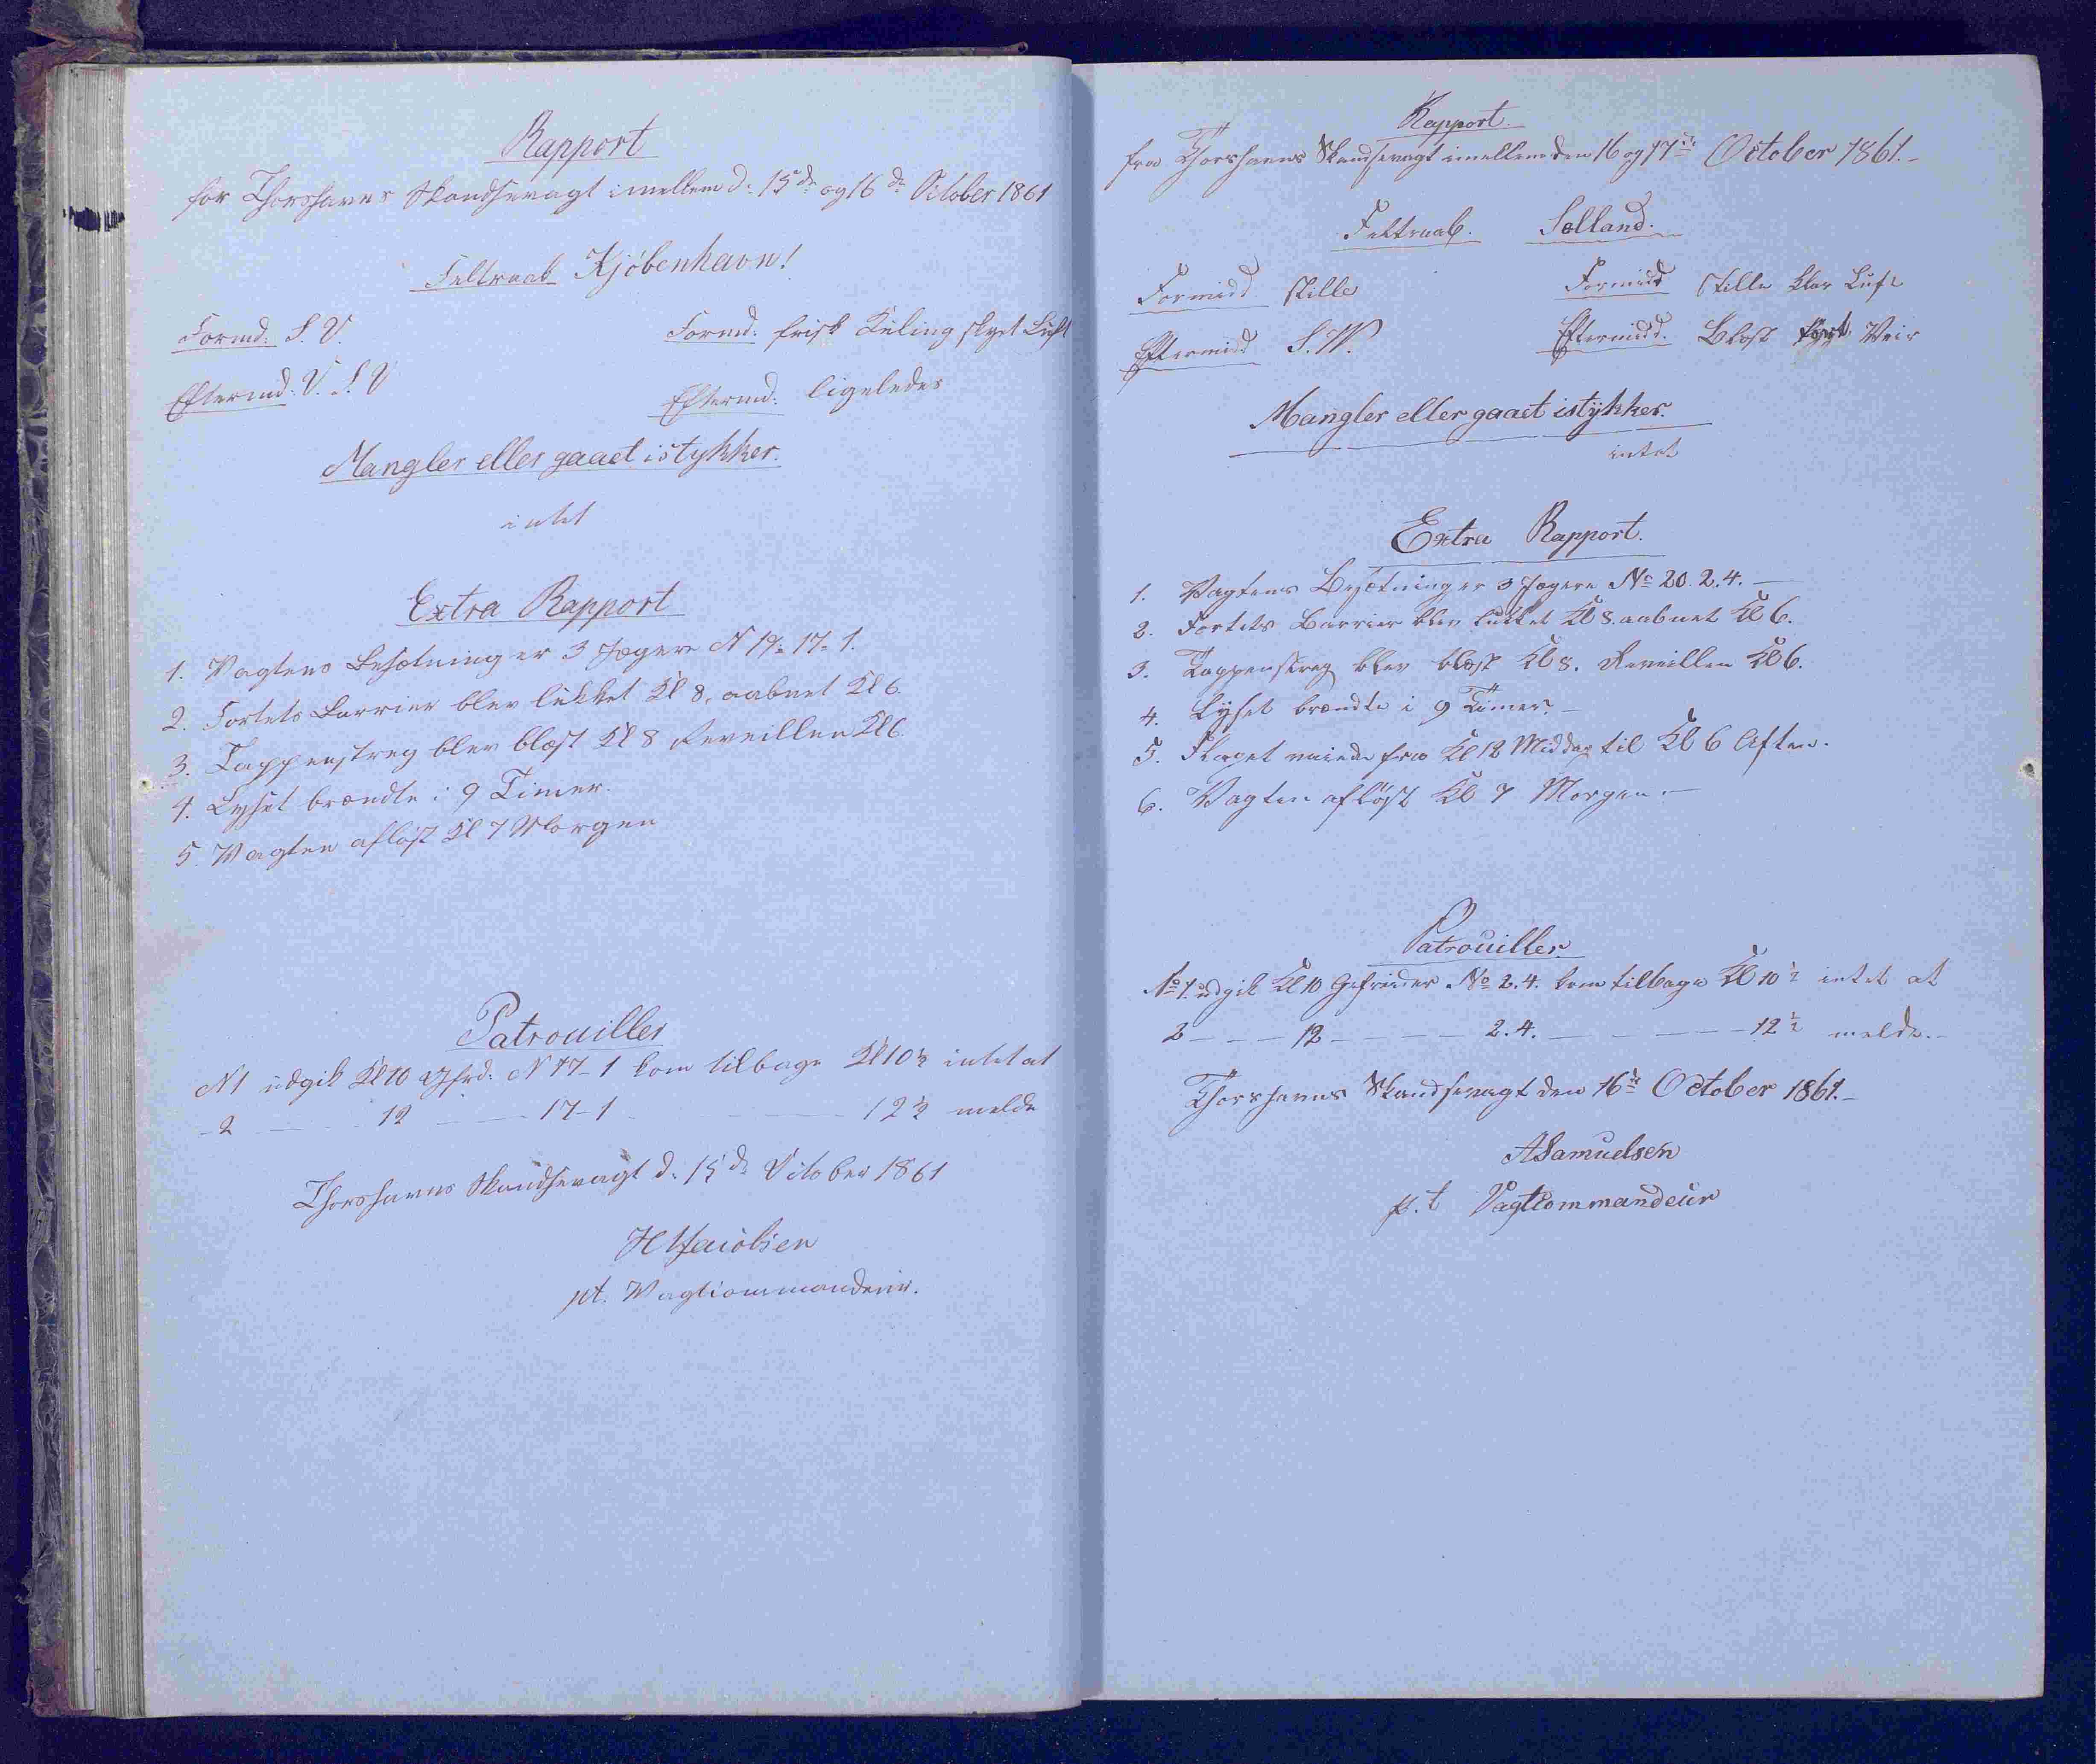 Rapport
for Thorshavns Skandsevagt imellem d: 15de og 16de October 1861
Feltraab Kjøbenhavn!
Formd: S. V. Formd: frisk Kuling skyet Luft
Eftermd: V. S. V Eftermd: ligeledes
Mangler eller gaaet istykker.
intet
Extra Rapport
1. Vagtens Besætning er 3 Jægere N 19- 17- 1.
2. Fortets Barrier blev lukket Kl 8, aabnet Kl 6.
3. Tappenstreg blev blæst Kl 8 Reveillen Kl 6.
4. Lyset brændte i 9 Timer.
5. Vagten afløst Kl 7 Morgen
Patrouiller
N 1 udgik Kl 10 Gfrd: N 17-1 kom tilbage Kl 10 ½ intet at
- 2 — 12 — 17-1 — 12 ½ melde
Thorshavns Skandsevagt d: 15de October 1861
H Jacobsen
pt. Vagtcommandeur.
Rapport.
fra Thorshavns Skandsevagt imellem den 16 og 17de October 1861.-
Feltraab. Sølland.
Formidd stille Formidd Stille klar Luft
Eftermidd S.W. Eftermidd. Blæst Veir
Mangler eller gaaet istykker.
intet
Extra Rapport.
1. Vagtens Besætning er 3 Jægere No 20. 2. 4. —
2. Fortets Barrier blev lukket Kl 8. aabnet Kl 6.
3. Tappenstreg blev blæst Kl 8. Reveillen Kl 6.
4. Lyset brændte i 9 Timer. –
5. Flaget vaiede fra Kl 12 Middag til Kl 6 Aften.
6. Vagten afløst Kl 7 Morgen. —
Patrouiller.
No 1. udgik Kl 10 Gefreider No 2. 4. kom tilbage Kl 10 ½ intet at
2 — — 12 — — — 2. 4. — — — 12 ½ melde. -
Thorshavns Skandsevagt den 16de October 1861.-
A Samuelsen
p. t Vagtcommandeur